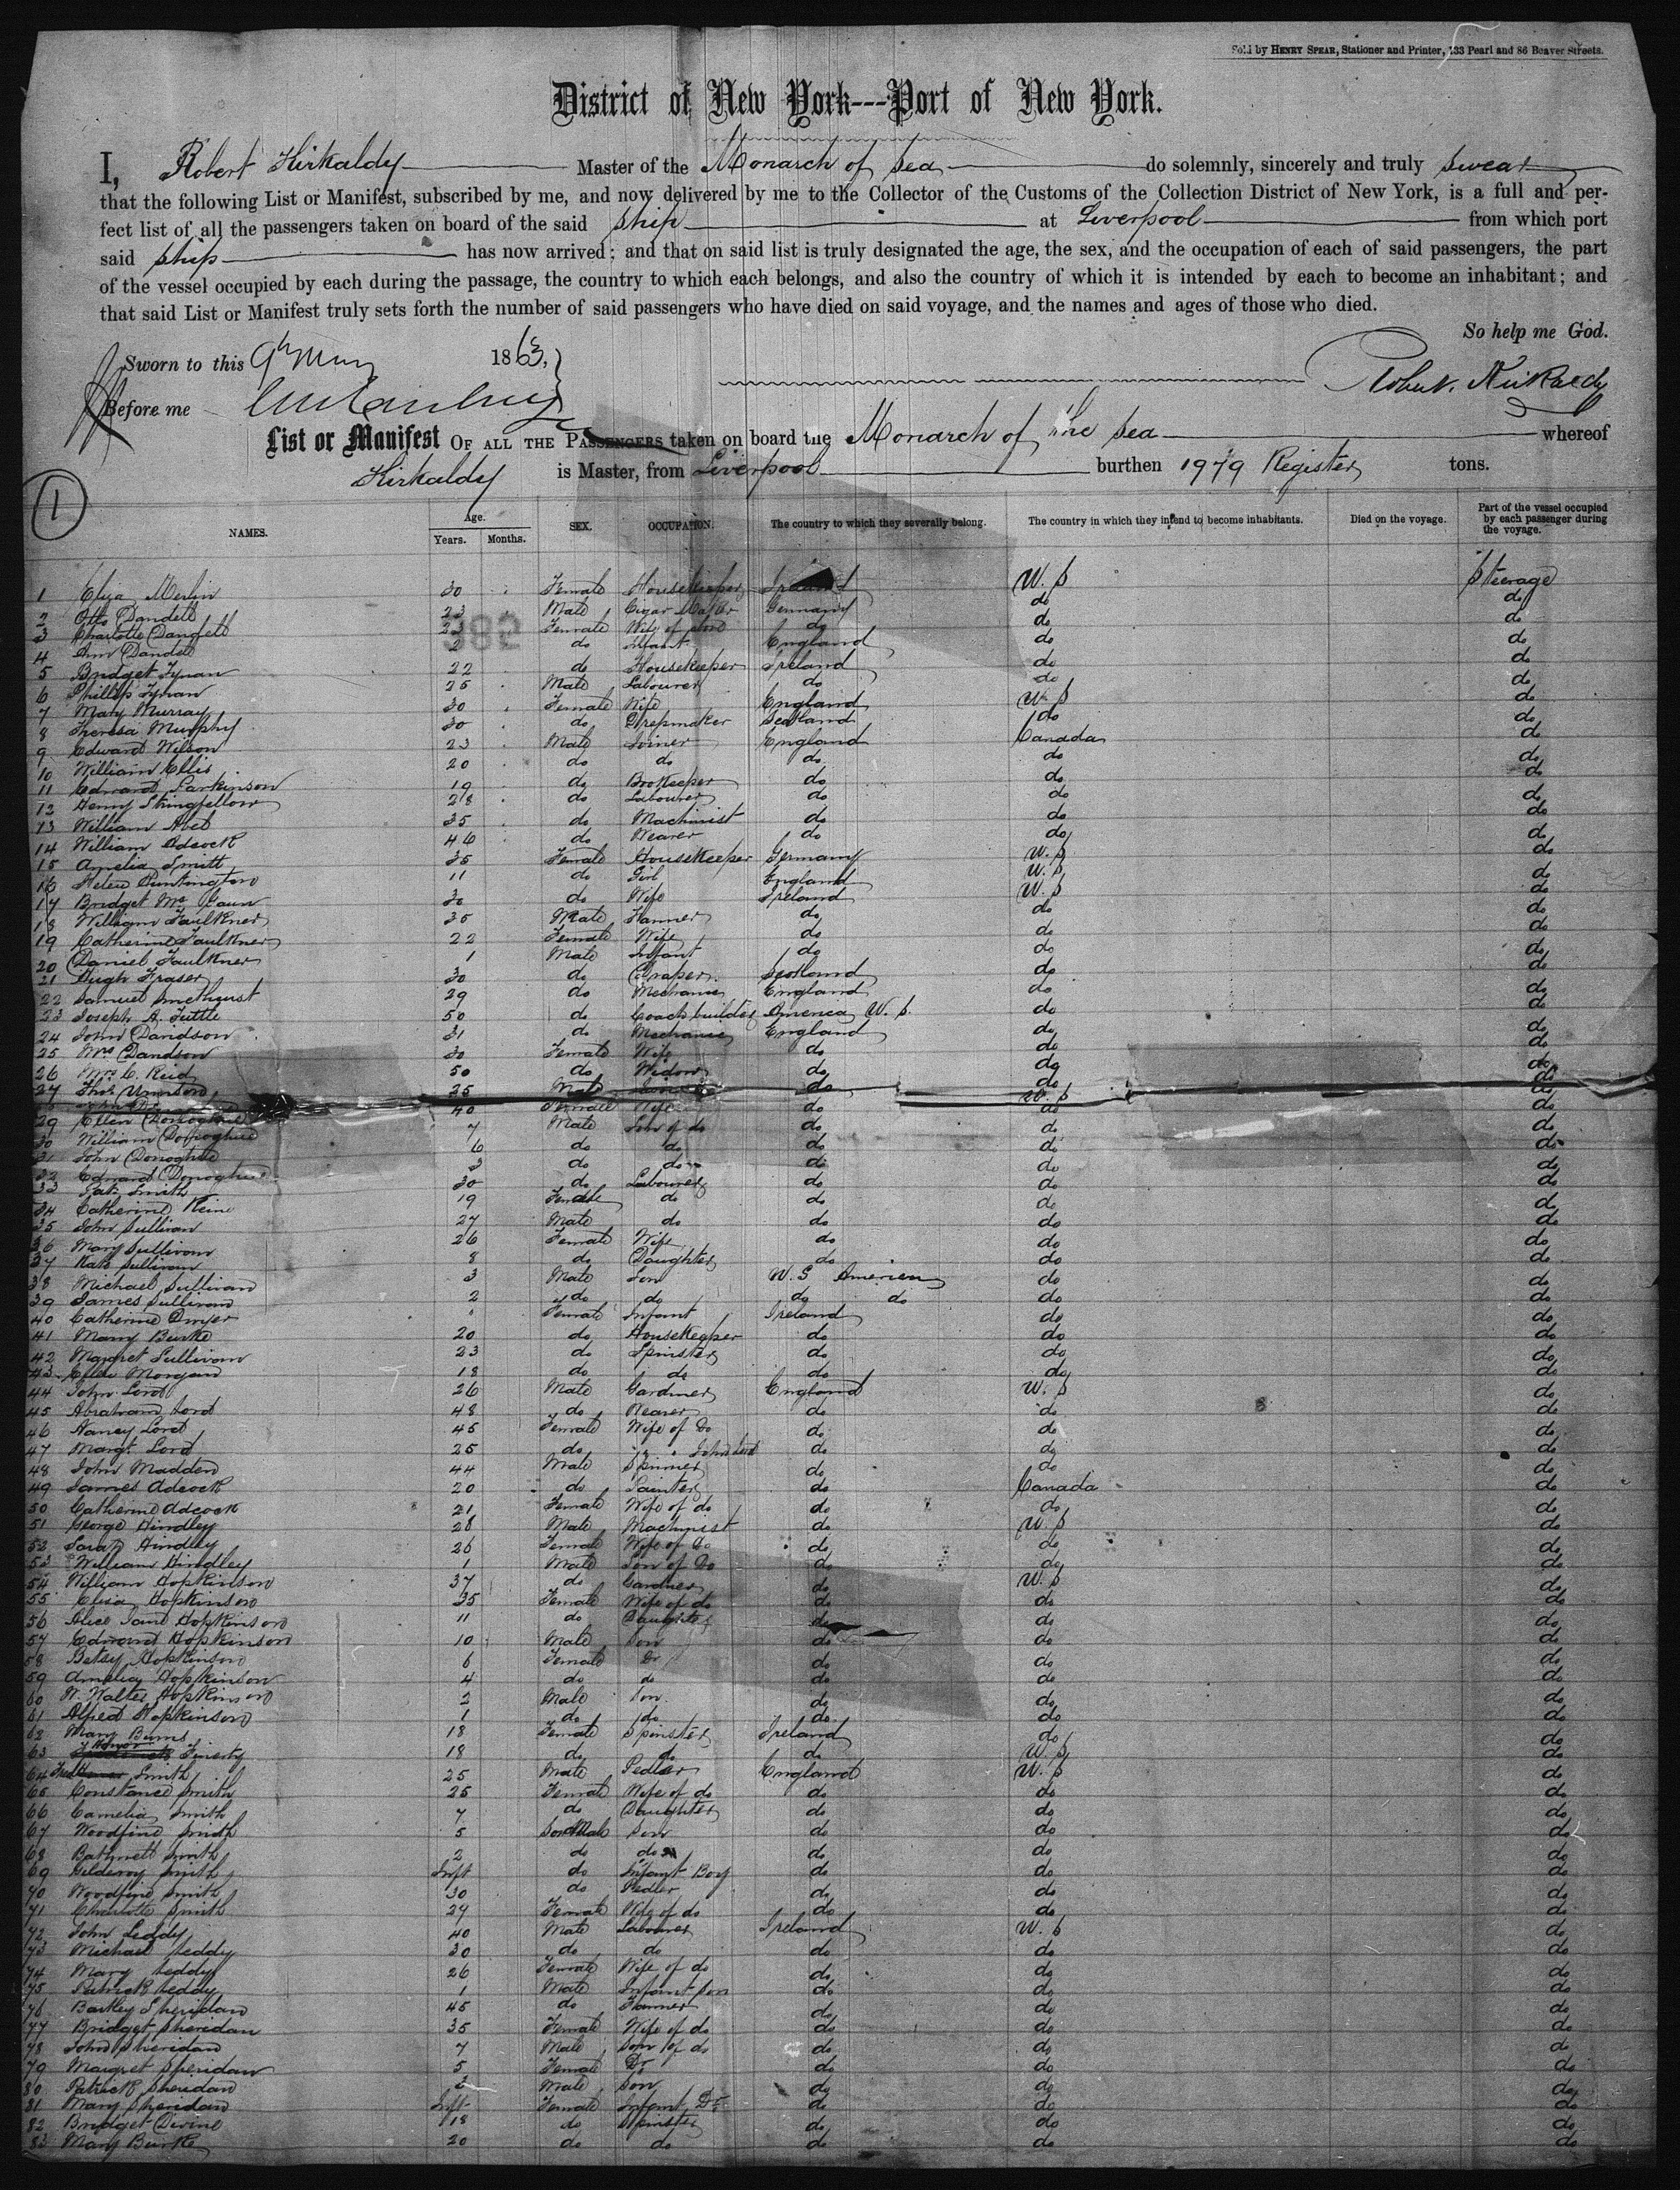 Sold by HENRY SPEAR, Stationer and Printer, 133 Pearl and 86 Beaver Streets.
District of New York---Port of New York.
I, Robert Kirkaldy Master of the Monarch of Sea do solemnly, sincerely and truly swear
that the following List or Manifest, subscribed by me, and now delivered by me to the Collector of the Customs of the Collection District of New York, is a full and per-
fect list of all the passengers taken on board of the said ship at Liverpool from which port
said ship has now arrived; and that on said list is truly designated the age, the sex, and the occupation of each of said passengers, the part
of the vessel occupied by each during the passage, the country to which each belongs, and also the country of which it is intended by each to become an inhabitant; and
that said List or Manifest truly sets forth the number of said passengers who have died on said voyage, and the names and ages of those who died.
So help me God.
Sworn to this 9th May 1863,
Robert Kirkaldy
Before me
List or Manifest OF ALL THE PASSENGERS taken on board the Monarch of the Sea whereof
Kirkaldy is Master, from Liverpool burthen 1979 Register tons.
1
NAMES. Age. Years. Months. SEX. OCCUPATION. The country to which they severally belong. The country in which they intend to become inhabitants. Died on the voyage. Part of the vessel occupied by each passenger during the voyage.
1 Eliza Merlin 30 Female Housekeeper U.S Steerage
2 Otto Dandell 23 Male Cigar Maker Germany do do
3 Charlotte Dandell Female Wife of do do do
4 Ann Dandell 2 do Infant England do do
5 Bridget Tynan 22 do Housekeeper Ireland do do
6 Phillip Tynan 25 Male Labourer do do do
7 Mary Murray 30 Female Wife England U.S do
8 Theresa Murphy 30 do Dressmaker Scotland do do
9 Edward Wilson 23 Male Joiner England Canada do
10 William Ellis 20 do do do do do
11 Edward Parkinson 19 do Bookeeper do do do
12 Henry Stringfellow 28 do Labourer do do do
13 William Abel 35 do Machinist do do do
14 William Adcock 46 do Weaver do do do
15 Amelia Smitt 35 Female Housekeeper Germany U.S do
16 Helen Puntington 11 do Girl England U.S do
17 Bridget Mc Gaun 30 do Wife Ireland U.S do
18 William Faulkner 35 Male Farmer do do do
19 Catherine Faulkner 22 Female Wife do do do
20 Daniel Faulkner 1 Male Infant do do do
21 Hugh Fraser 30 do Draper Scotland do do
22 Samuel Smethurst 29 do Mechanic England do do
23 Joseph A. Tuttle 50 do Coach builder America U.S. do do
24 John Davidson 31 do Mechanic England do do
25 Mrs Davidson 30 Female Wife do do do
26 Mrs C. Reid 50 do Widow do do do
27 Thos 25 Male do do do
40 Female Wife do U.S do
29 Ellen Donoghue 7 Male Son of do do do do
30 William Donoghue 6 do do do do do
31 John Donoghue 3 do do do do do
32 Edward Donoghue 30 do Labourer do do do
33 Pat Smith 19 Female do do do do
34 Catherine Keine 27 Male do do do do
35 John Sullivan 26 Female Wife do do do
36 Mary Sullivan 8 do Daughter do do do
37 Kate Sullivan 3 Male Son U.S America do do
38 Michael Sullivan 2 do do do do do do
39 James Sullivan Female Infant Ireland do do
40 Catherine Dwyer 20 do Housekeeper do do do
41 Mary Burke 23 do Spinster do do do
42 Margret Sullivan 18 do do do do do
43 Ellen Morgan
44 John Lord 26 Male Gardiner England U.S do
45 Abraham Lord 48 do Weaver do do do
46 Nancy Lord 45 Female Wife of Do do do do
47 Margt Lord 25 do " " John Lord do do do
48 John Madden 44 Male Spinner do do do
49 James Adcock 20 do Painter do Canada do
50 Catherine Adcock 21 Female Wife of do do do do
51 George Hindley 28 Male Machinist do U.S do
52 Sarah Hindley 26 Female Wife of Do do do do
53 William Hindley 1 Male Son of Do do do do
54 William Hopkinson 37 do Gardner do U.S do
55 Eliza Hopkinson 35 Female Wife of do do do do
56 Alice Jane Hopkinson 11 do Daughter do do do
57 Edward Hopkinson 10 Male Son do do do
58 Betsy Hopkinson 6 Female Dr do do do
59 Amelia Hopkinson 4 do do do do do
60 W. Walter Hopkinson 2 Male Son do do do
61 Alfred Hopkinson 1 do do do do do
62 Mary Burns 18 Female Spinster Ireland do do
63 Honor Finerty 18 do do do U.S do
64 Fred Smith 25 Male Pedlar England U.S do
65 Constance Smith 25 Female Wife of do do do do
66 Camelia Smith 7 do Daughter do do do
67 Woodfine Smith 5 Male Son do do do
68 Bathwell Smith 2 do do do do do
69 Gilderoy Smith Inft do Infant Boy do do do
70 Woodfine Smith 30 do Pedler do do do
71 Charlotte Smith 29 Female Wife of do do do do
72 John Leddy 40 Male Labourer Ireland U.S do
73 Michael Leddy 30 do do do do do
74 Mary Leddy 26 Female Wife of do do do do
75 Patrick Leddy 1 Male Infant Son do do do
76 Bartley Sheridan 45 do Farmer do do do
77 Bridget Sheridan 35 Female Wife of do do do do
78 John Sheridan 7 Male Son of do do do do
79 Margret Sheridan 5 Female Dr do do do
80 Patrick Sheridan 2 Male Son do do do
81 Mary Sheridan Inft Female Infant Dr do do do
82 Bridget Divine 18 do Spinster do do do
83 Mary Burke 20 do do do do do